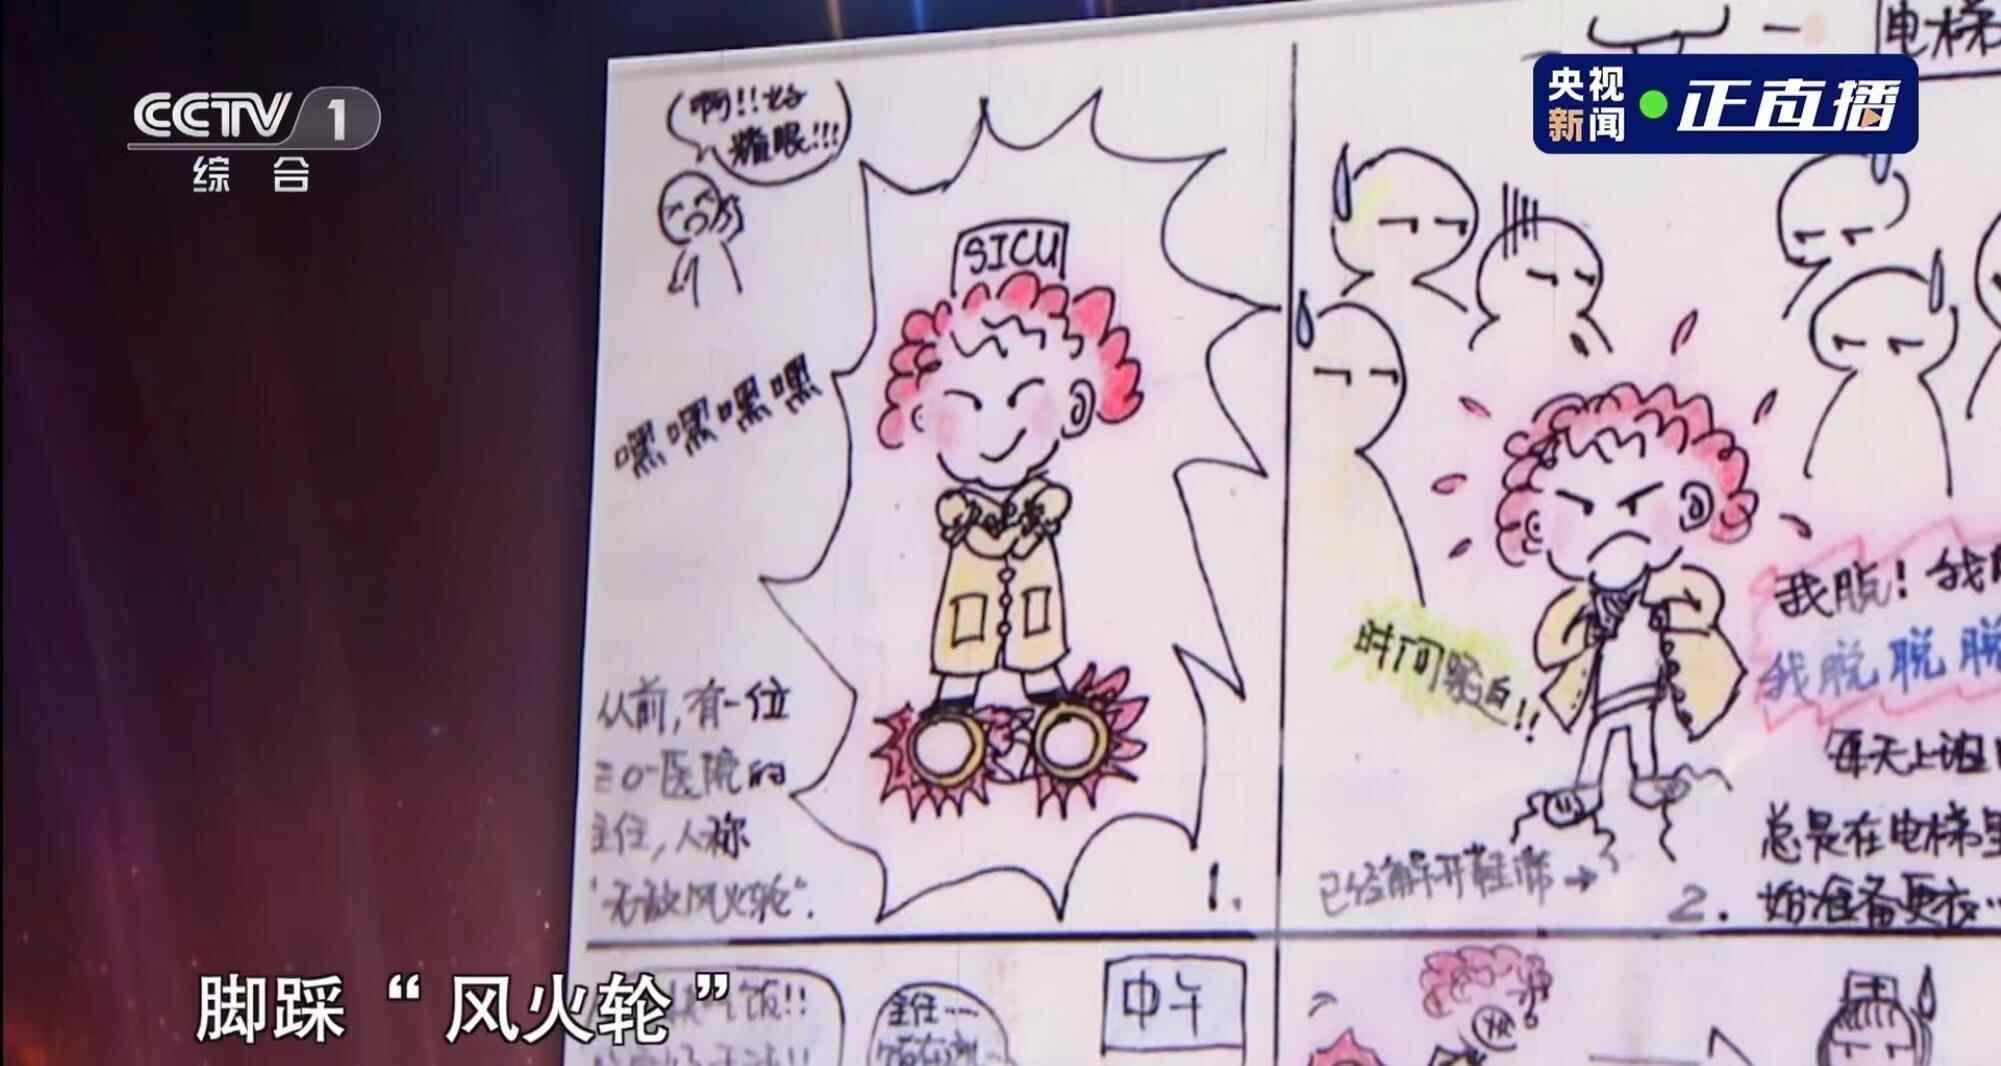 CCTV 1
综合
央视
新闻
正直播
电梯
啊!!好
耀眼!!!
SICU
嘿嘿嘿嘿
从前,有一位
三〇一医院的
主任,人称
"无敌风火轮".
1.
时间紧迫!!
我脱!我
我脱脱脱
每天上班
总是在电梯里
始准备更衣…
已经解开鞋带→
2.
饭!!
主任…
中午
脚踩“风火轮”